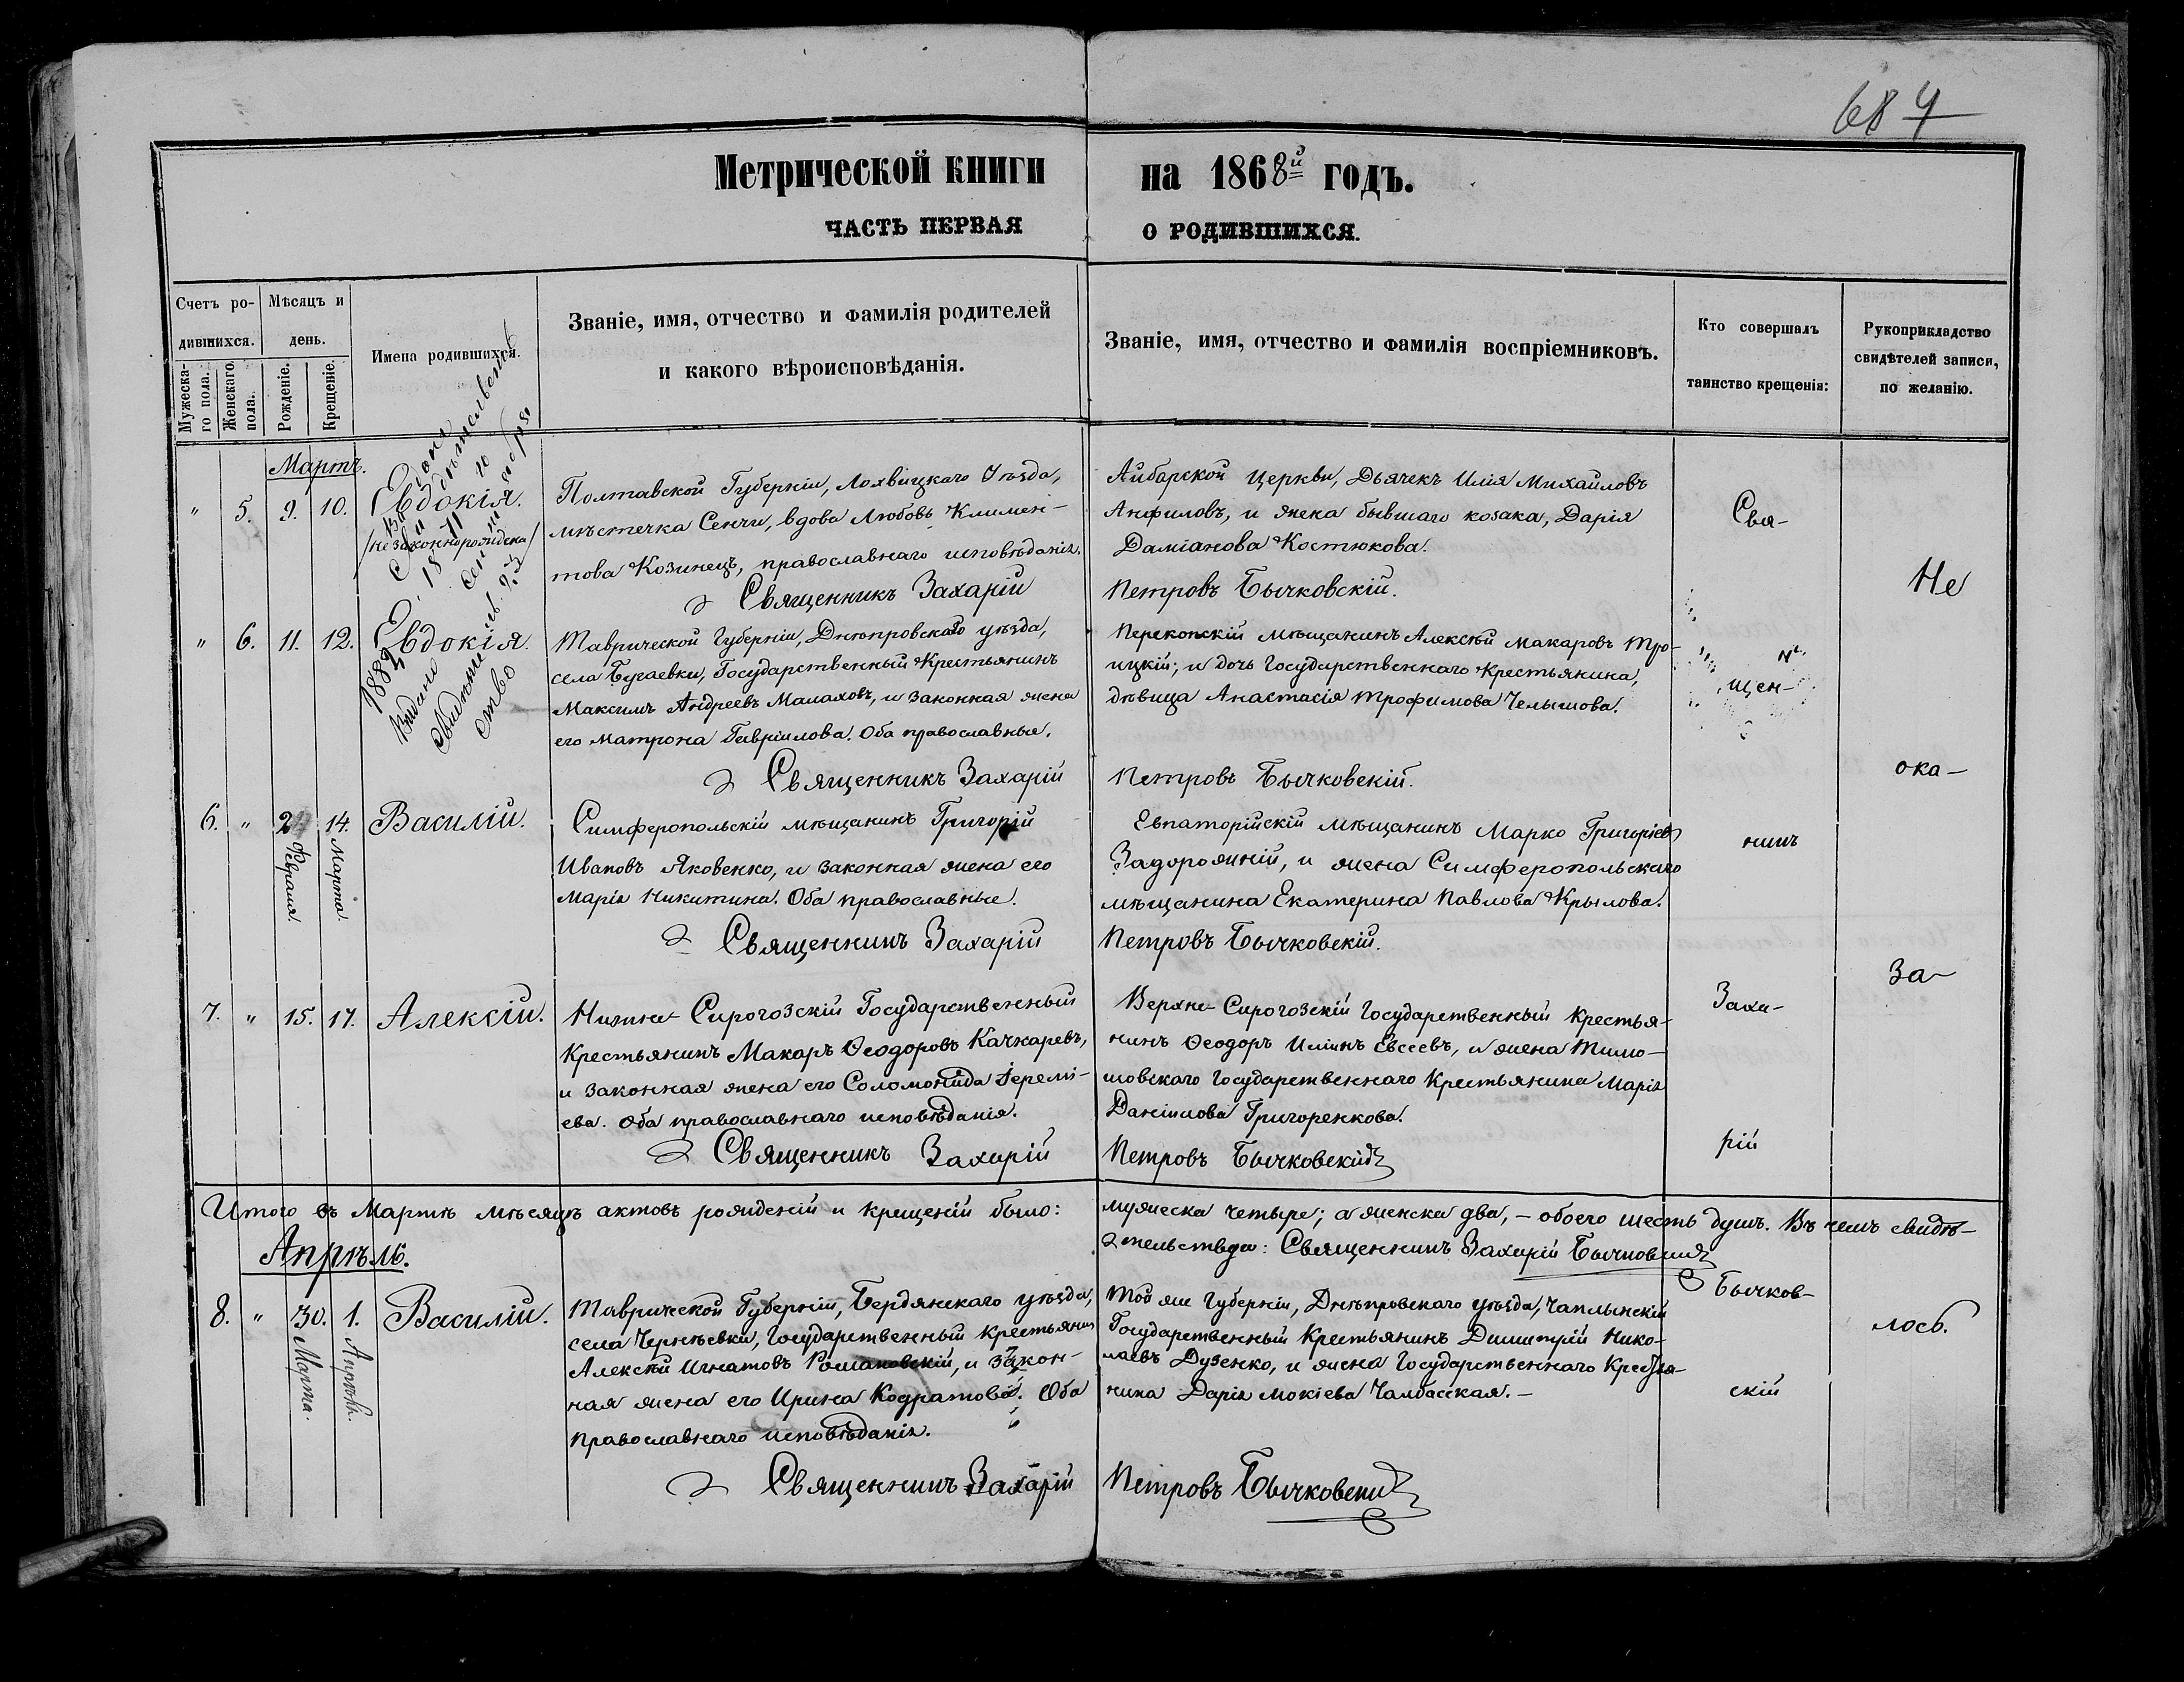 684
Метрической книги на 1868й годъ.
ЧАСТЬ ПЕРВАЯ О РОДИВШИХСЯ.
Счетъ ро-
дившихся.
Мужеска-
го пола.
Женскаго
пола.
Мѣсяцъ и
день.
Рожденіе.
Крещеніе.
Имена родившихся.
Званіе, имя, отчество и фамилія родителей
и какого вѣроисповѣданія.
Званіе, имя, отчество и фамилія воспріемниковъ.
Кто совершалъ
таинство крещенія:
Рукоприкладство
свидѣтелей записи,
по желанію.
Мартъ.
" 5. 9. 10. Евдокія.
/незаконнорождена/
Полтавской Губерніи, Лохвицкаго Уѣзда,
мѣстечка Сенчи, вдова Любовь Климен-
това Козинецъ, православнаго исповѣданія.
Священникъ Захарій
Айбарской Церкви, Дьячекъ Илія Михайловъ
Анфиловъ, и жена бывшаго козака, Дарія
Даміанова Костюкова.
Петровъ Бычковскій.
Свя-
Не
" 6. 11. 12. Евдокія.
1889
Видано
свидѣтель
ство
Таврической Губерніи, Днѣпровскаго уѣзда,
села Бугаевки, Государственный Крестьянинъ
Максимъ Андреевъ Малаховъ, и законная жена
его Матрона Гавріилова. Оба православные.
Священникъ Захарій
Перекопскій мѣщанинъ Алексѣй Макаровъ Тро-
ицкій; и дочь Государственнаго Крестьянина,
дѣвица Анастасія Трофимова Челышова.
Петровъ Бычковскій.
щен-
ока-
6. " 24 Февраля. 14. Марта. Василій.
Симферопольскій мѣщанинъ Григорій
Ивановъ Яковенко, и законная жена его
Марія Никитина. Оба православные.
Священникъ Захарій
Евпаторійскій Мѣщанинъ Марко Григоріевъ
Задорожній, и жена Симферопольскаго
мѣщанина Екатерина Павлова Крылова.
Петровъ Бычковскій.
никъ
За-
7. " 15. 17. Алексій.
Нижне-Сирогозскій Государственный
Крестьянинъ Макаръ Ѳеодоровъ Качкаревъ,
и законная жена его Соломонида Іеремі-
ева. Оба православнаго исповѣданія.
Священникъ Захарій
Верхне-Сирогозскій Государственный Крестья-
нинъ Ѳеодоръ Иліинъ Евсеевъ, и жена Тимо-
шовскаго Государственнаго Крестьянина Марія
Даніилова Григоренкова.
Петровъ Бычковскій
Заха-
рій
Итого въ Мартѣ мѣсяцѣ актовъ рожденій и крещеній было: мужеска четыре; а женска два, - обоего шесть душъ. Въ чемъ свидѣ-
тельствую: Священникъ Захарій Бычковскій
Апрѣль.
8. " 30. Марта. 1. Апрѣля. Василій.
Таврической Губерніи, Бердянскаго уѣзда,
села Чернѣевки, Государственный крестьянинъ
Алексѣй Игнатовъ Романовскій, и закон-
ная жена его Ирина Кодратова. Оба
православнаго исповѣданія.
Священникъ Захарій
Той же Губерніи, Днѣпровскаго уѣзда, Чаплынскій
Государственный Крестьянинъ Димитрій Нико-
лаевъ Дузенко, и жена Государственнаго Крестья-
нина Дарія Мокіева Чалбасская. -
Петровъ Бычковскій
Бычков-
скій
лось.